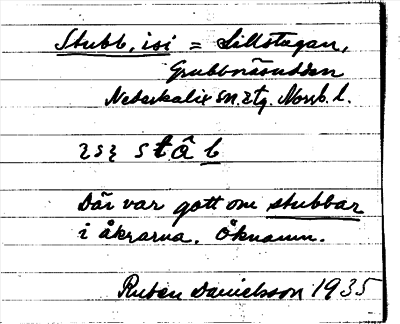 Stubb, isi = Lillstugan,
Grubbnäsudden
Nederkalix sn. Norrb. l.
stâb
Där var gott om stubbar
i åkrarna. Öknamn.
Ruben Danielsson 1935